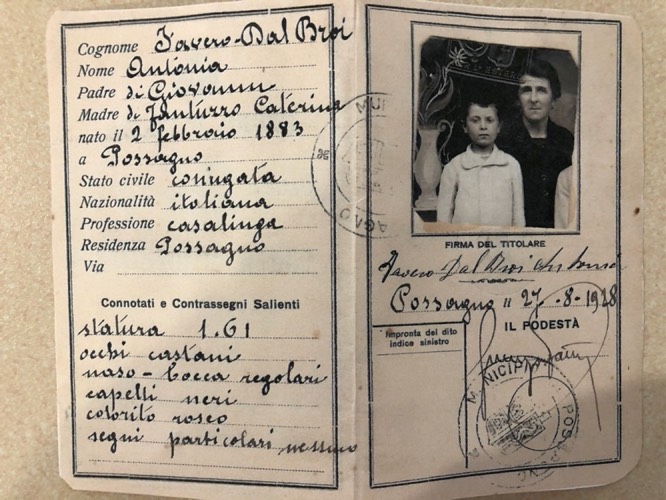 Cognome Favero-Dal Broi
Nome Antonia
Padre di Giovanni
Madre di Fanturzo Caterina
nato il 2 febbraio 1883
a Possagno
Stato civile coniugata
Nazionalità italiana
Professione casalinga
Residenza Possagno
Via
Connotati e Contrassegni Salienti
statura 1.61
occhi castani
naso - bocca regolari
capelli neri
colorito roseo
segni particolari nessuno
FIRMA DEL TITOLARE
Favero Dal Broi Antonia
Possagno il 27-8-1928
Impronta del dito
indice sinistro
IL PODESTÀ